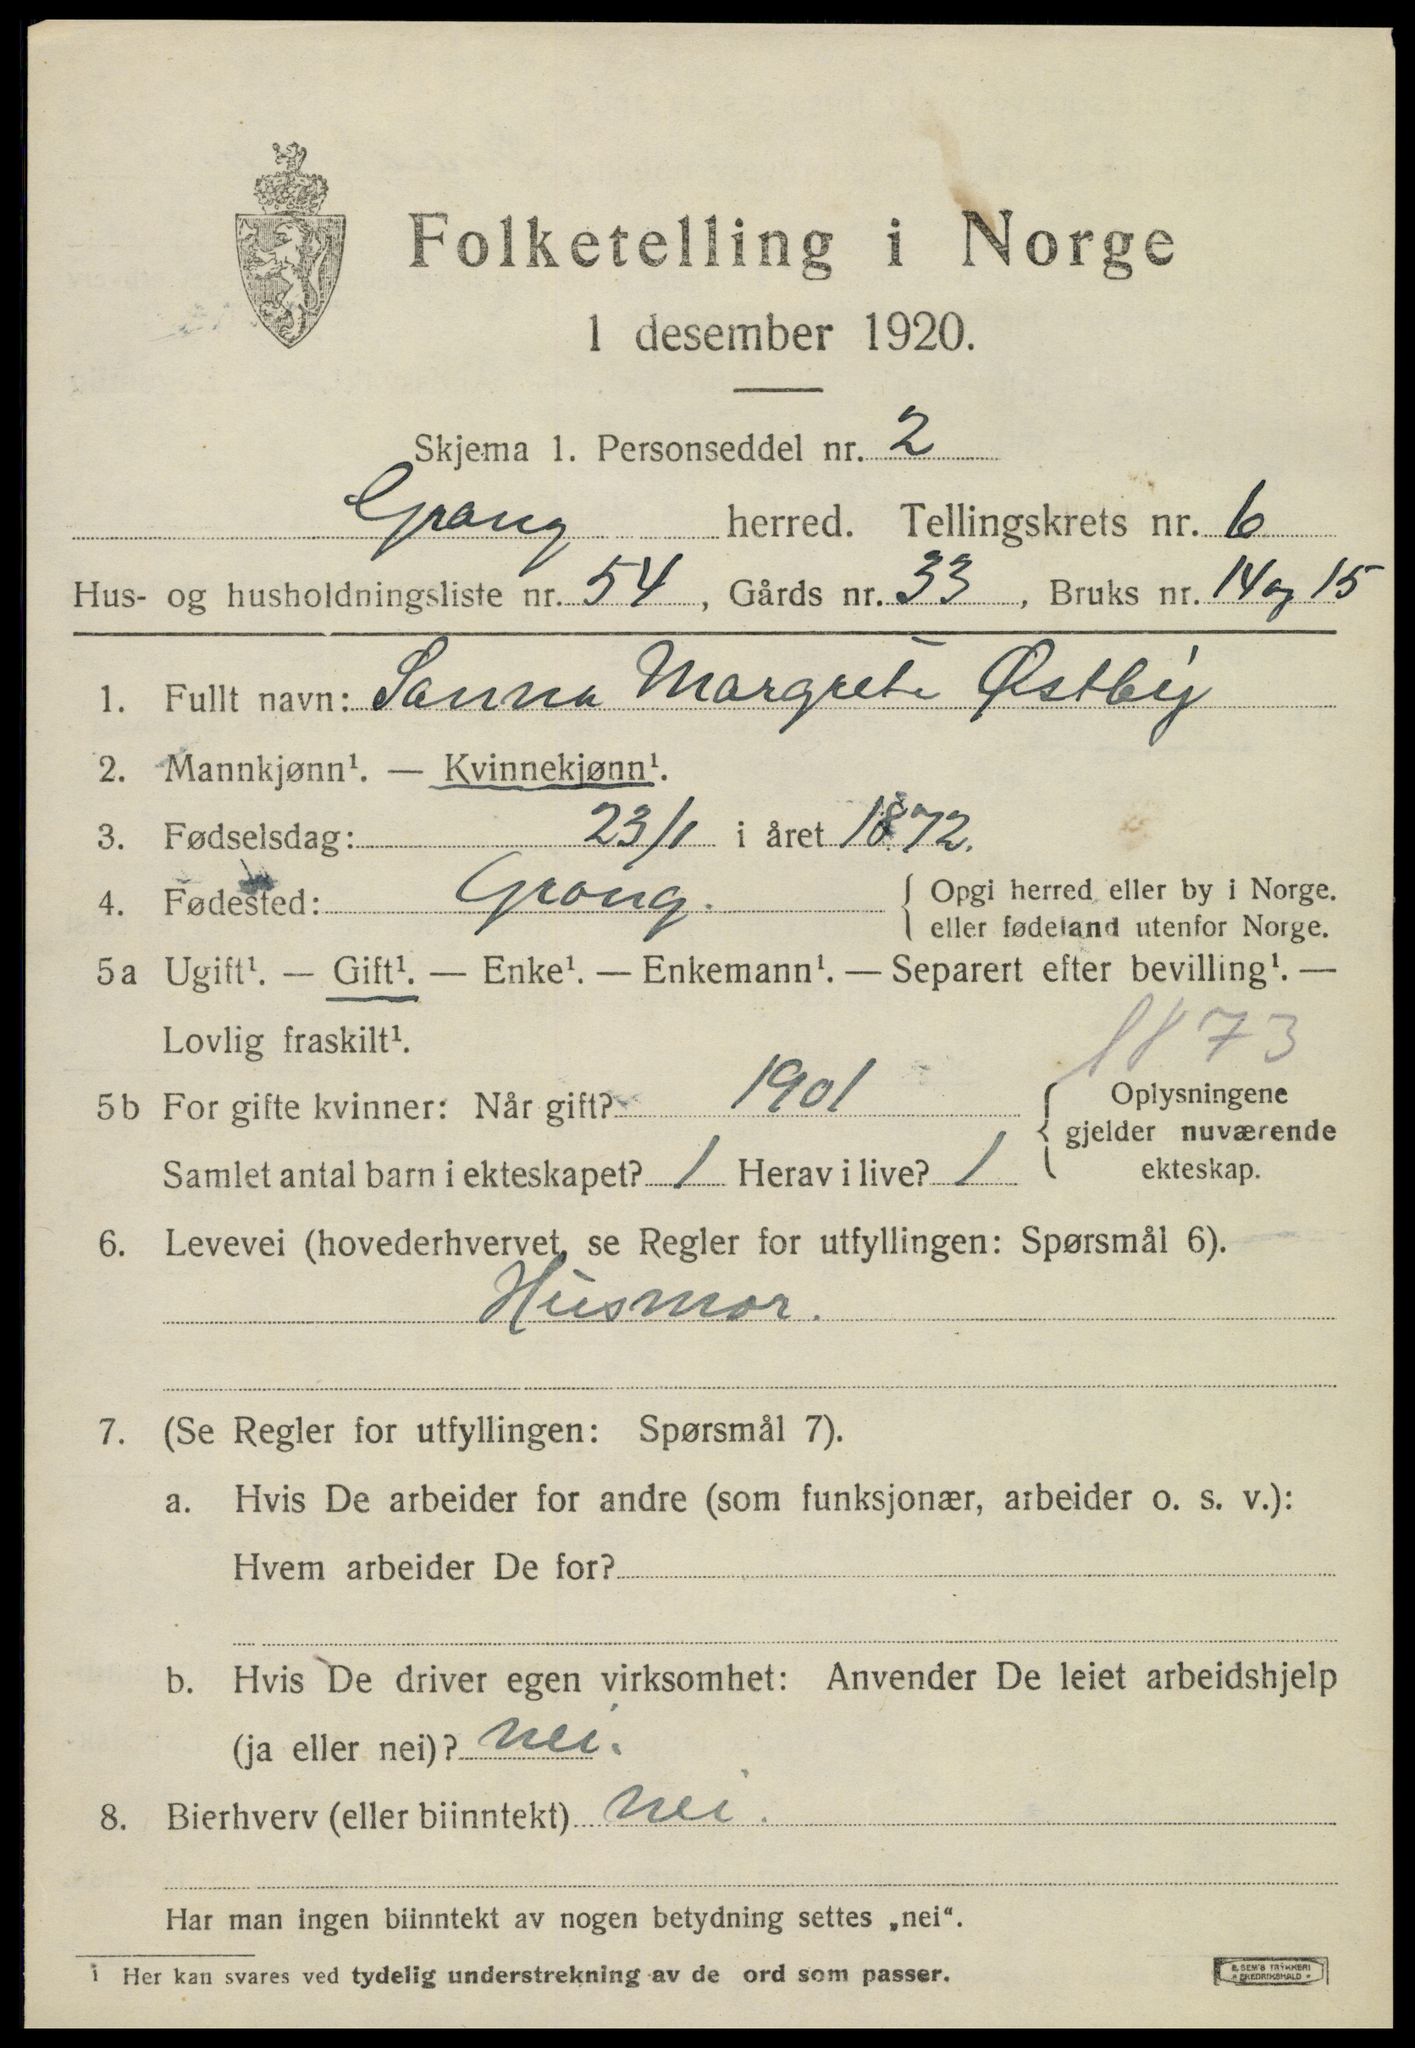 Folketelling i Norge
1 desember 1920.
Skjema 1. Personseddel nr. 2
Grong herred. Tellingskrets nr. 6
Hus- og husholdningsliste nr. 54, Gårds nr. 33, Bruks nr. 14 og 15
1. Fullt navn: Sanna Margrete Østby
2. Mannkjønn¹. — Kvinnekjønn¹.
3. Fødselsdag: 23/1 i året 1872.
4. Fødested: Grong. { Opgi herred eller by i Norge.
eller fødeland utenfor Norge.
5a Ugift¹. — Gift¹. — Enke¹. — Enkemann¹. — Separert efter bevilling¹. —
Lovlig fraskilt¹. 1873
5b For gifte kvinner: Når gift? 1901
Samlet antal barn i ekteskapet? 1 Herav i live? 1
{ Oplysningene
gjelder nuværende
ekteskap.
6. Levevei (hovederhvervet, se Regler for utfyllingen: Spørsmål 6).
Husmor.
7. (Se Regler for utfyllingen: Spørsmål 7).
a. Hvis De arbeider for andre (som funksjonær, arbeider o. s. v.):
Hvem arbeider De for?
b. Hvis De driver egen virksomhet: Anvender De leiet arbeidshjelp
(ja eller nei)? nei.
8. Bierhverv (eller biinntekt) nei.
Har man ingen biinntekt av nogen betydning settes „nei“.
¹ Her kan svares ved tydelig understrekning av de ord som passer.
E. SEM'S TRYKKERI
* FREDRIKSHALD *